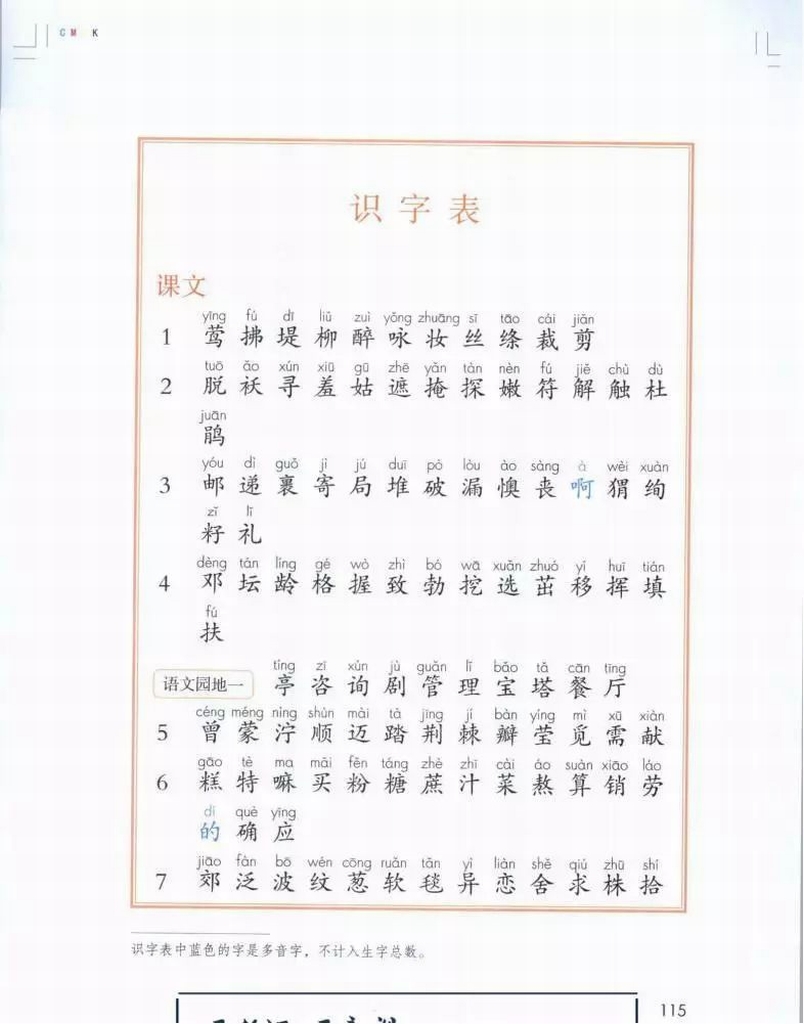 CM K
识字表
课文
yīng fú dī liǔ zuì yǒng zhuāng sī tāo cái jiǎn
1 莺 拂 堤 柳 醉 咏 妆 丝 绦 裁 剪
tuō ǎo xún xiū gū zhē yǎn tàn nèn fú jiě chù dù
2 脱 袄 寻 羞 姑 遮 掩 探 嫩 符 解 触 杜
juān
鹃
yóu dì guǒ jì jú duī pò lòu ào sàng à wèi xuàn
3 邮 递 裹 寄 局 堆 破 漏 懊 丧 啊 猬 绚
zǐ lǐ
籽 礼
dèng tán líng gé wò zhì bó wā xuǎn zhuó yí huī tián
4 邓 坛 龄 格 握 致 勃 挖 选 茁 移 挥 填
fú
扶
tíng zī xún jù guǎn lǐ bǎo tǎ cān tīng
语文园地一 亭 咨 询 剧 管 理 宝 塔 餐 厅
céng méng nìng shùn mài tà jīng jí bàn yíng mì xū xiàn
5 曾 蒙 泞 顺 迈 踏 荆 棘 瓣 莹 觅 需 献
gāo tè ma mǎi fěn táng zhè zhī cài áo suàn xiāo láo
6 糕 特 嘛 买 粉 糖 蔗 汁 菜 熬 算 销 劳
dí què yīng
的 确 应
jiāo fàn bō wén cōng ruǎn tǎn yì liàn shě qiú zhū shí
7 郊 泛 波 纹 葱 软 毯 异 恋 舍 求 株 拾
识字表中蓝色的字是多音字，不计入生字总数。
115